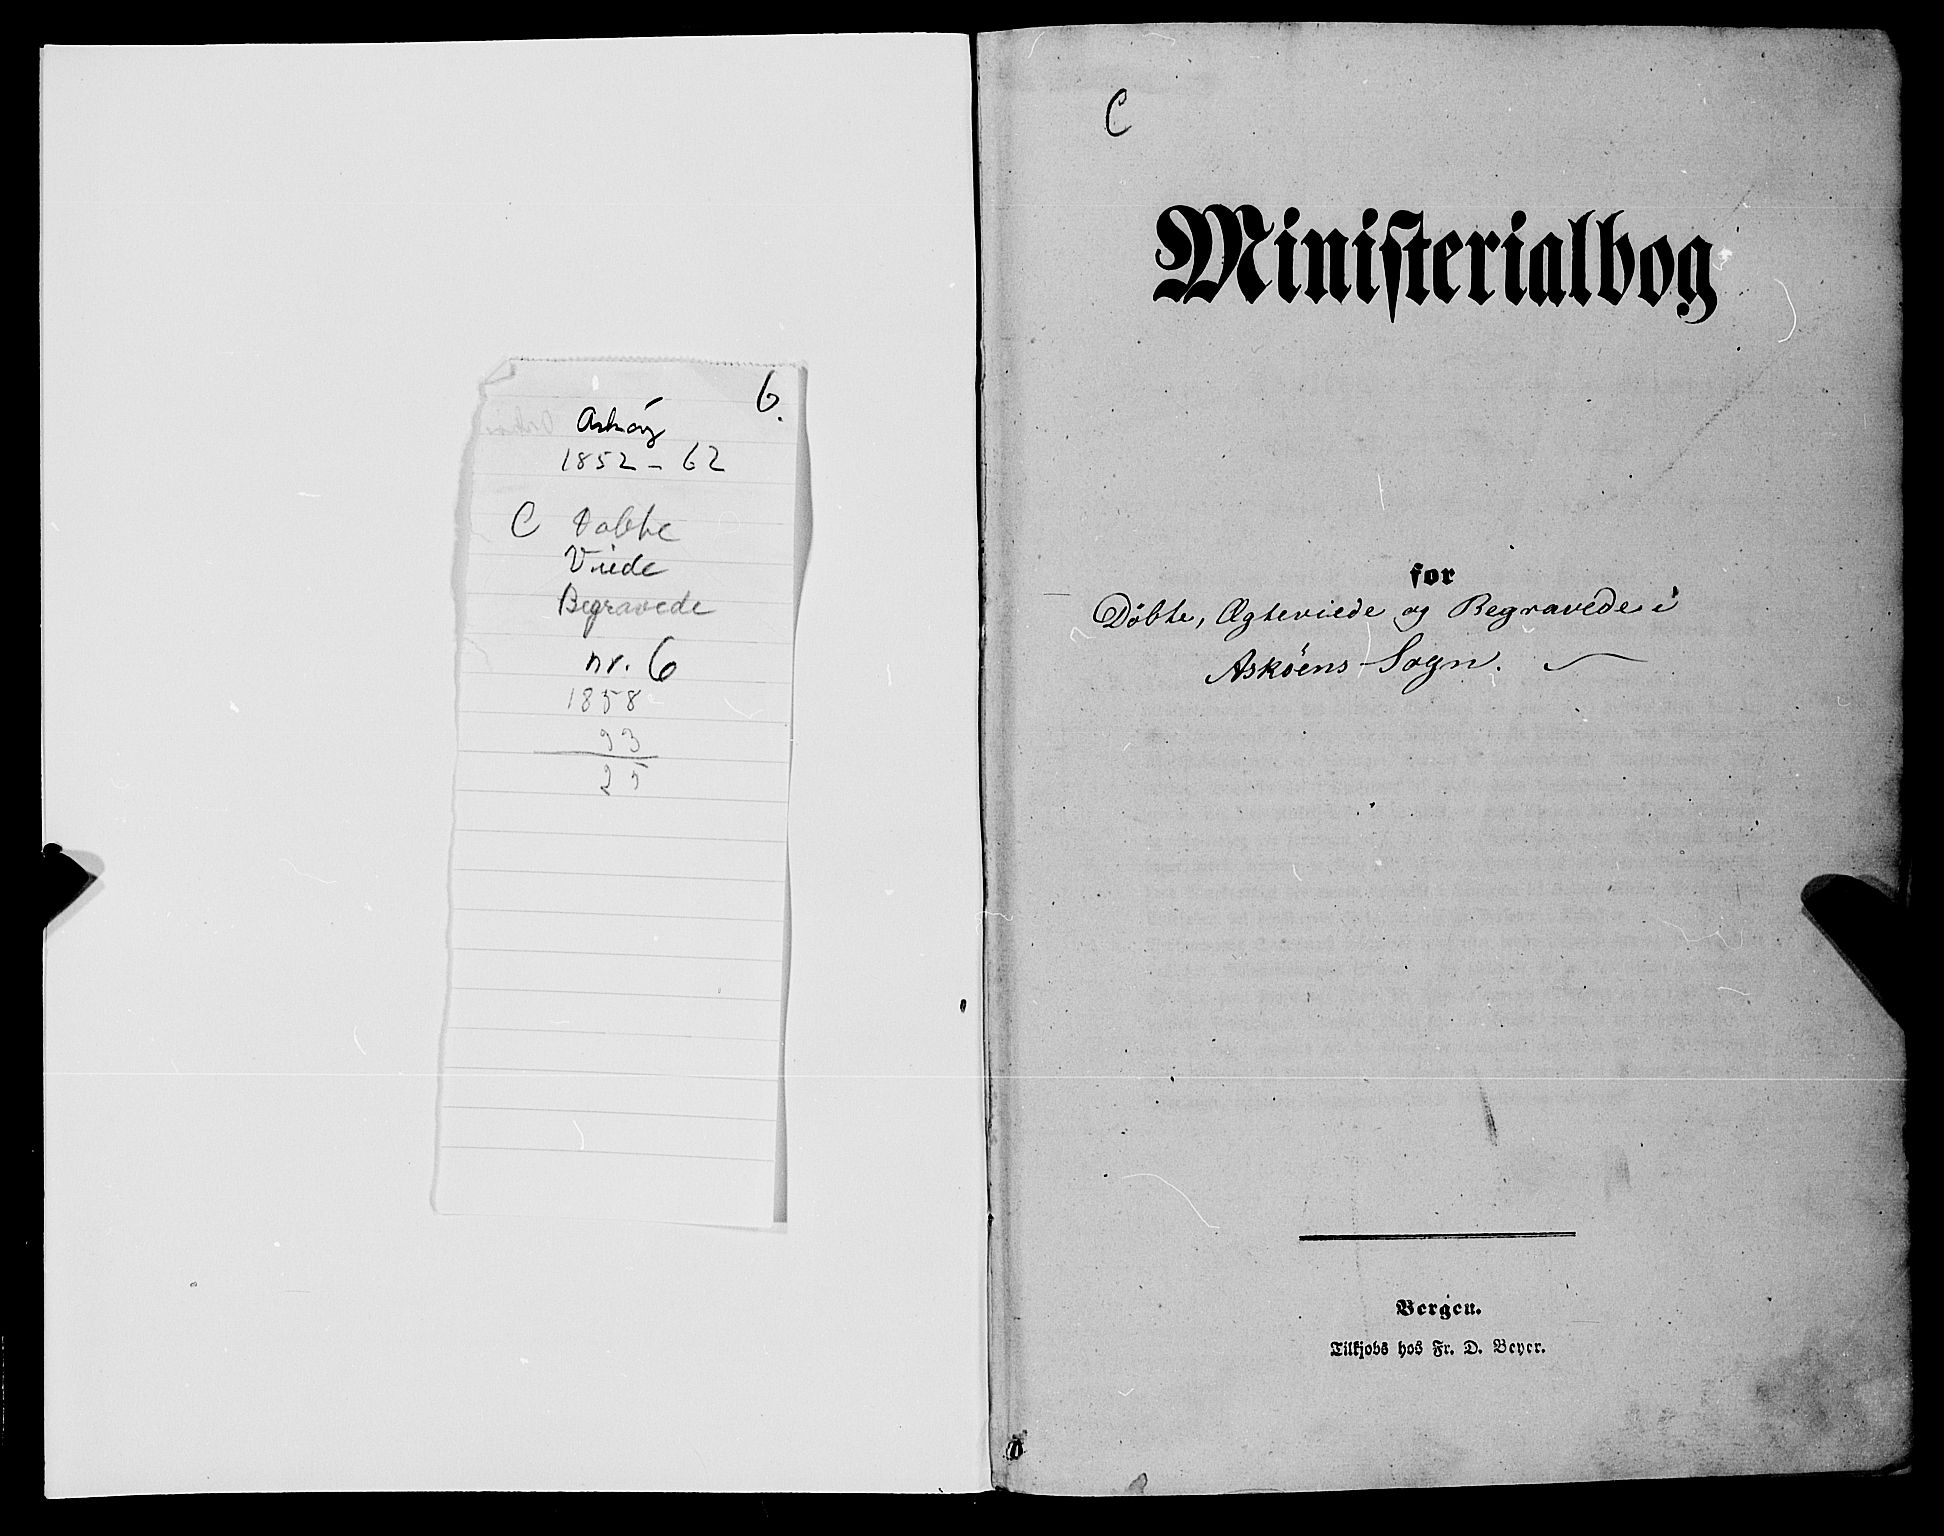 6.
Askøy
1852-62
C Døbte
Viede
Begravede
nr. 6
1858
93
25
C
Ministerialbog
for
Döbte, Ægteviede og Begravede i
Asköens Sogn.
Bergen.
Tilkjøbs hos Fr. D. Beyer.